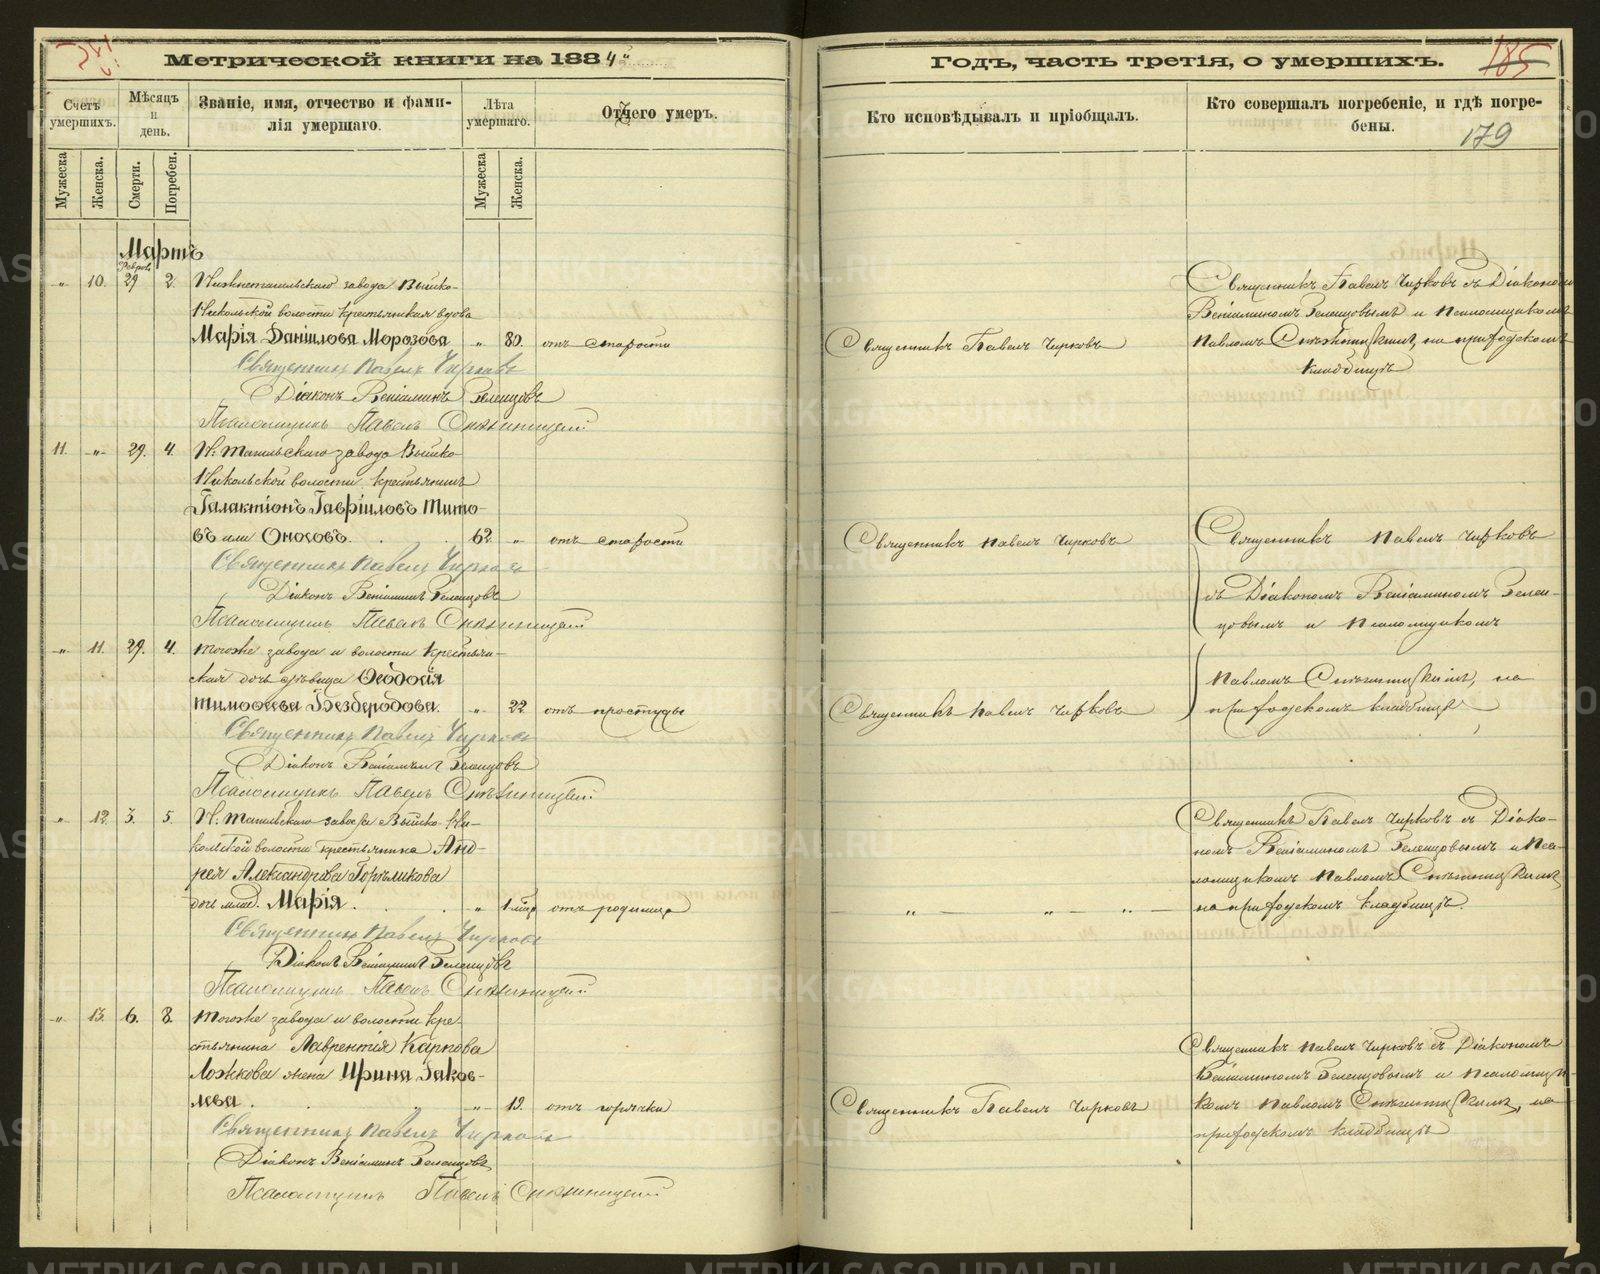 Метрической книги на 1884й
Счетъ умершихъ.
Мѣсяцъ и день.
Званіе, имя, отчество и фами-
лія умершаго.
Лѣта умершаго.
Отчего умеръ.
Мужеска
Женска.
Смерти.
Погребен.
Мужеска
Женска.
Мартъ
Февр.
" 10. 29 2. Нижнетагильскаго завода Выйско-
Никольской волости крестьянская вдова
Марія Даніилова Морозова " 80. отъ старости
Священникъ Павелъ Чирковъ
Діаконъ Веніаминъ Зеленцовъ
Псаломщикъ Павелъ
11. " 29. 4. Н. Тагильскаго завода Выйско-
Никольской волости крестьянинъ
Галактіонъ Гавріиловъ Тито-
въ или Оносовъ. 62. " отъ старости
Священникъ Павелъ Чирковъ
Діаконъ Веніаминъ Зеленцовъ
Псаломщикъ Павелъ
" 11. 29. 4. Тогоже завода и волости крестьян-
ская дочь дѣвица Ѳеодосія
Тимоѳеева Безбородова. " 22. отъ простуды
Священникъ Павелъ Чирковъ
Діаконъ Веніаминъ Зеленцовъ
Псаломщикъ Павелъ
" 12. 3. 5. Н. Тагильскаго завода Выйско-Ни-
кольской волости крестьянина Анд-
рея Александрова
дочь млад. Марія. " отъ родимца
Священникъ Павелъ Чирковъ
Діаконъ Веніаминъ Зеленцовъ
Псаломщикъ Павелъ
" 13. 6. 8. Тогоже завода и волости кре-
стьянина Лаврентія Карпова
Ложкова жена Ирина Іаков-
лева. " 19. отъ горячки
Священникъ Павелъ Чирковъ
Діаконъ Веніаминъ Зеленцовъ
Псаломщикъ Павелъ
Годъ, часть третія, о умершихъ.
185
Кто исповѣдывалъ и пріобщалъ.
Кто совершалъ погребеніе, и гдѣ погре-
бены.
179
Священникъ Павелъ Чирковъ съ Діакономъ
Веніаминомъ Зеленцовымъ и Псаломщикомъ
Священникъ Павелъ Чирковъ
Павломъ на приходскомъ
кладбищѣ
Священникъ Павелъ Чирковъ
Священникъ Павелъ Чирковъ
съ Діакономъ Веніаминомъ Зелен-
цовымъ и Псаломщикомъ
Павломъ на
Священникъ Павелъ Чирковъ
приходскомъ кладбищѣ
Священникъ Павелъ Чирковъ съ Діако-
номъ Веніаминомъ Зеленцовымъ и Пса-
ломщикомъ Павломъ
— " — " — " —
на приходскомъ кладбищѣ.
Священникъ Павелъ Чирковъ съ Діакономъ
Веніаминомъ Зеленцовымъ и Псаломщи-
Священникъ Павелъ Чирковъ
комъ Павломъ на
приходскомъ кладбищѣ
METRIKI.GASO-URAL.RU